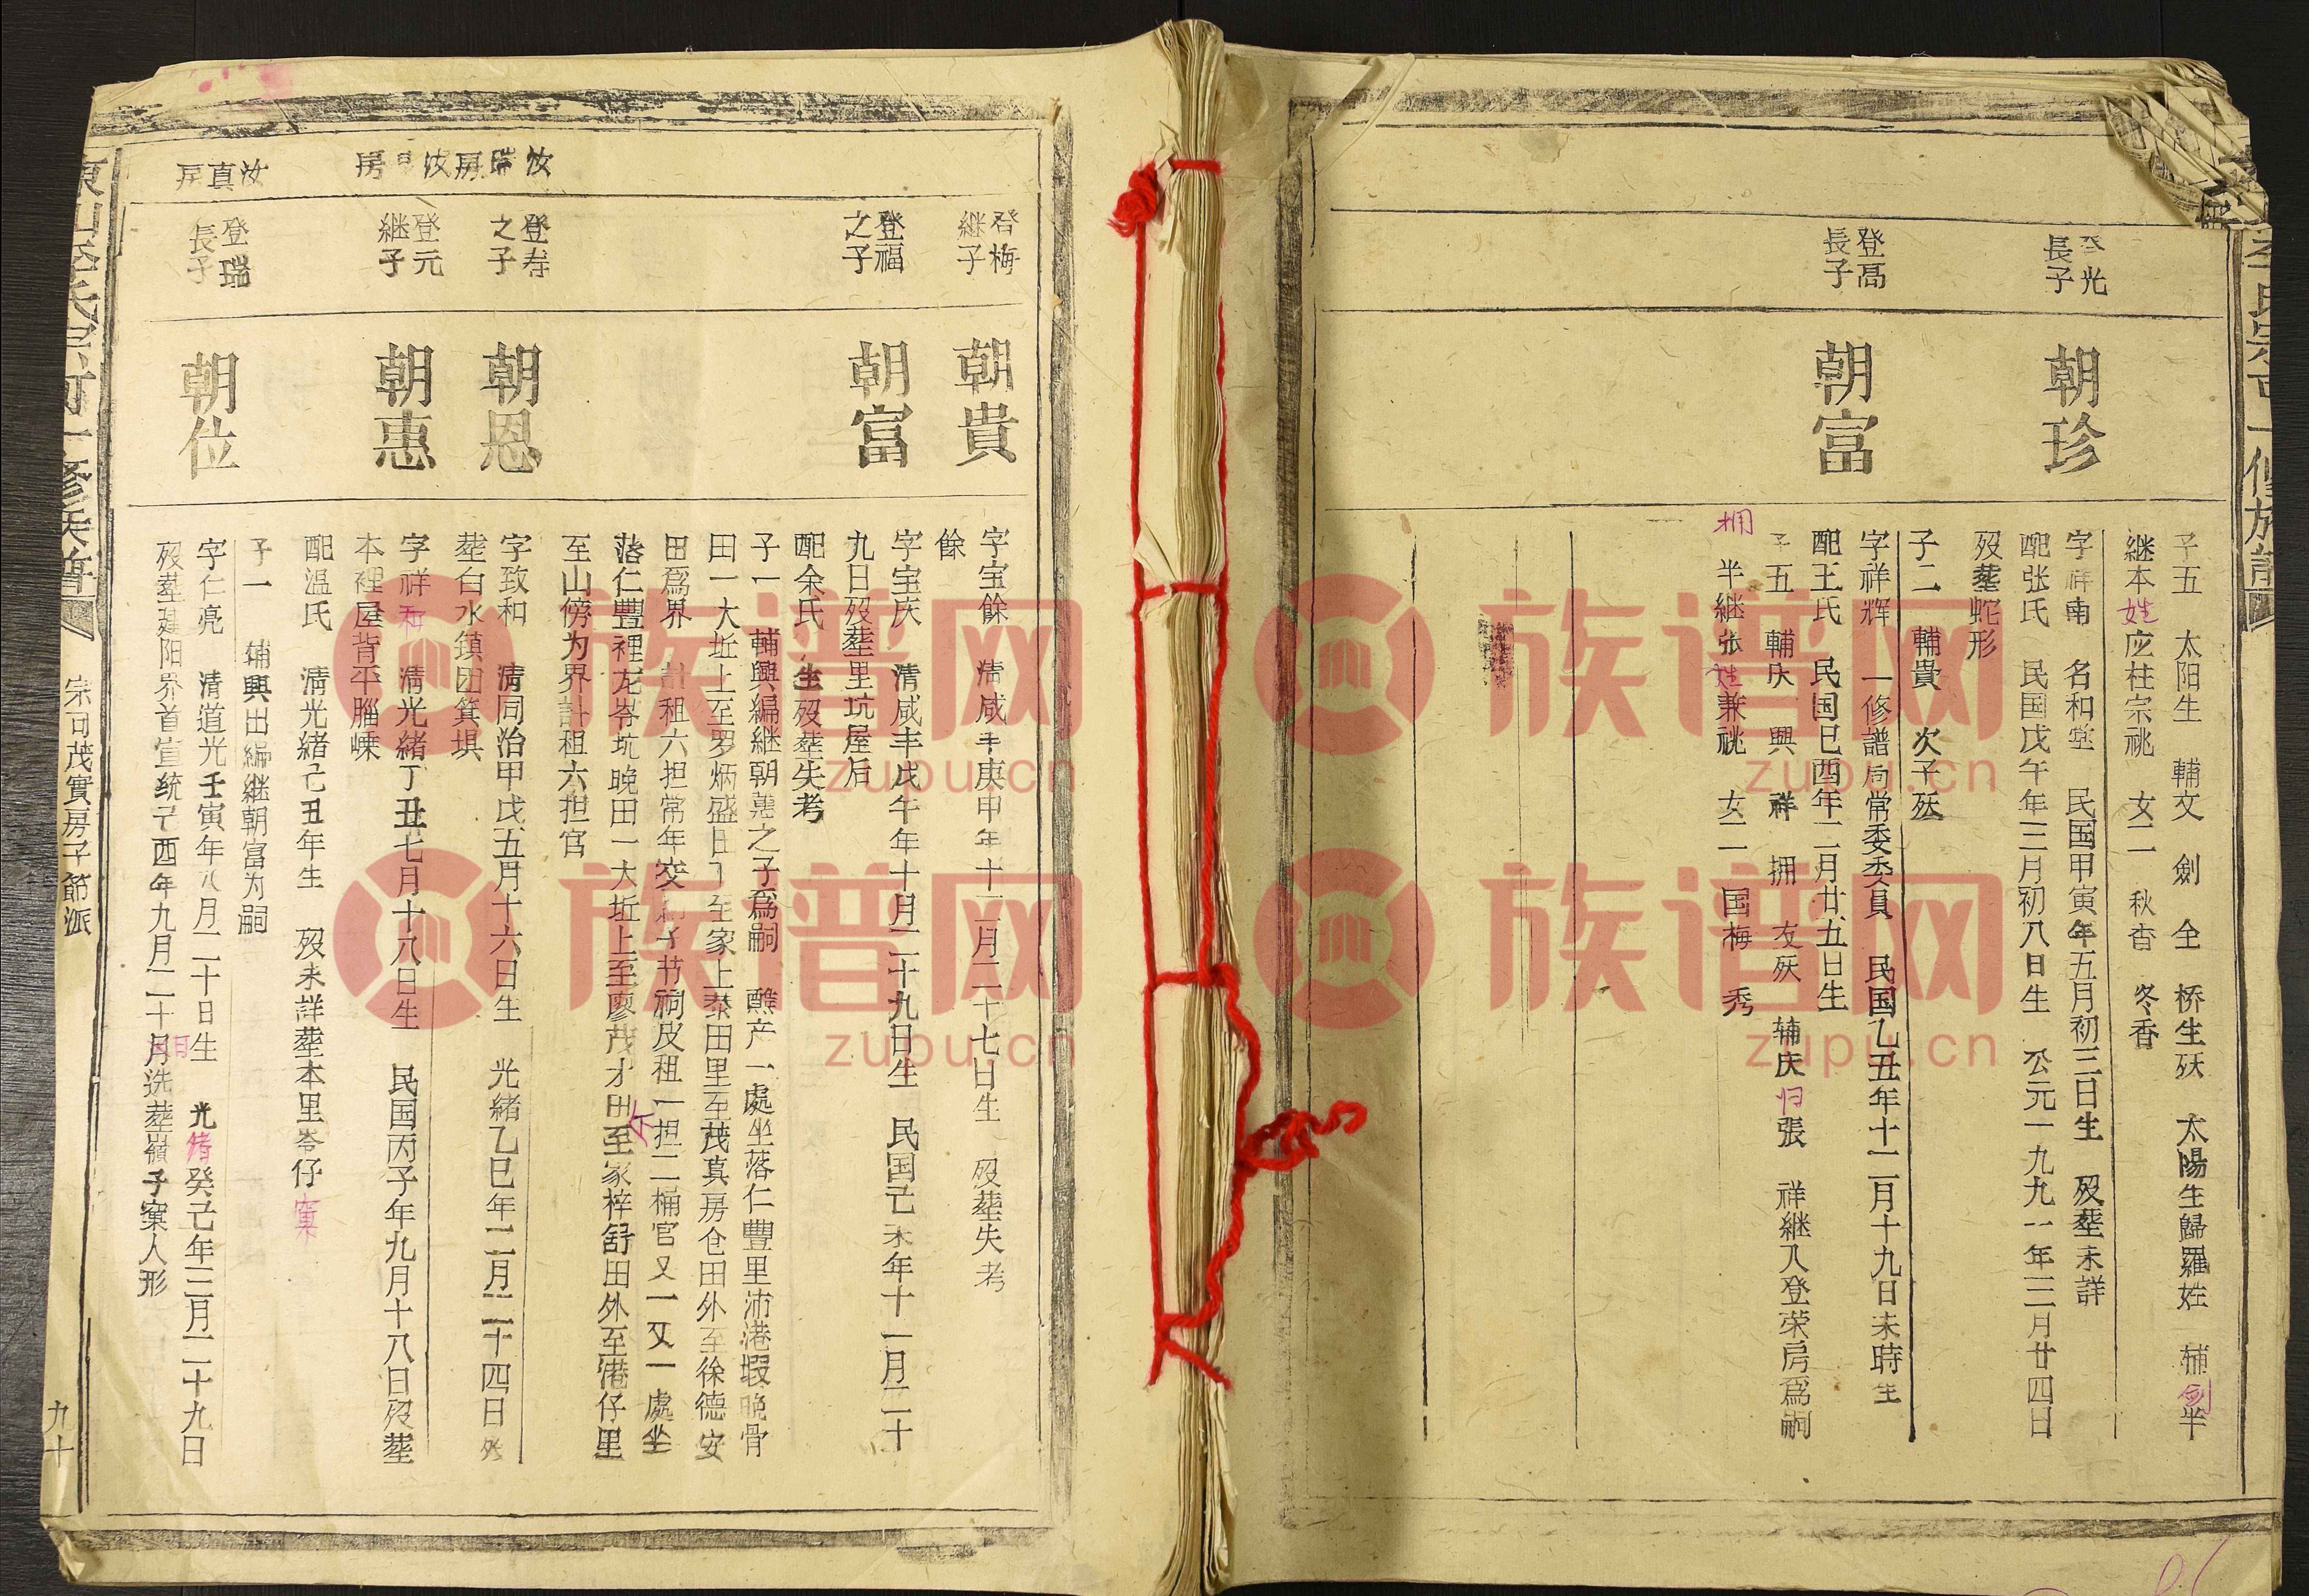 長子
朝珍
子五　太阳生　輔文　劍　全　桥生殀　太陽生歸羅姓　辅剑半
継本姓应柱宗祧　女二　秋香　冬香
字祥南　名和堂　民国甲寅年五月初三日生　殁塟未詳
配张氏　民国戊午年三月初八日生　公元一九九一年三月廿四日
殁塟蛇形
子二　輔貴　次子殀
登高
長子
朝富
字祥辉　一修譜局常委委員　民国乙丑年十二月十九日未時生
配王氏　民国己酉年二月廿五日生
子五　輔庆　興　祥　拥　友殀　辅庆归張　祥継入登荣房爲嗣
拥　半継张姓兼祧　女二　国梅　秀
登梅
継子
朝貴
字宝餘　清咸丰庚申年十二月二十七日生　殁塟失考
餘
登福
之子
朝富
字宝庆　清咸丰戊午年十月二十九日生　民国己未年十一月二十
九日殁塟里坑屋后
配余氏　生殁塟失考
子一　輔興編継朝惠之子爲嗣　醮产一處坐落仁豐里沛港塅晚骨
田一大坵上至罗炳盛田下至家上蓁田里至茂真房仓田外至徐德安
田爲界　計租六担常年交　书祠皮租一担二桶官又一又一處坐
落仁豐裡龙岺坑晚田一大坵上至廖茂才田至家梓舒田外至港仔里
至山傍为界計租六担官
汝瑞房
登寿
之子
朝恩
字致和　清同治甲戊五月十六日生　光緒乙巳年二月二十四日殁
塟白水鎮田箕垻
房
登元
継子
朝惠
字祥和　清光緒丁丑七月十八日生　民国丙子年九月十八日殁塟
本裡屋背平腦嵊
配温氏　清光緒己丑年生　殁未詳塟本里岺仔窠
子一　辅興出編継朝富为嗣
汝真房
登瑞
長子
朝位
字仁亮　清道光壬寅年八月二十日生　光绪癸己年三月二十九日
殁塟建阳界首宣统己酉年九月二十日月洗塟嶺子窠人形
宗可茂實房子節派
九十